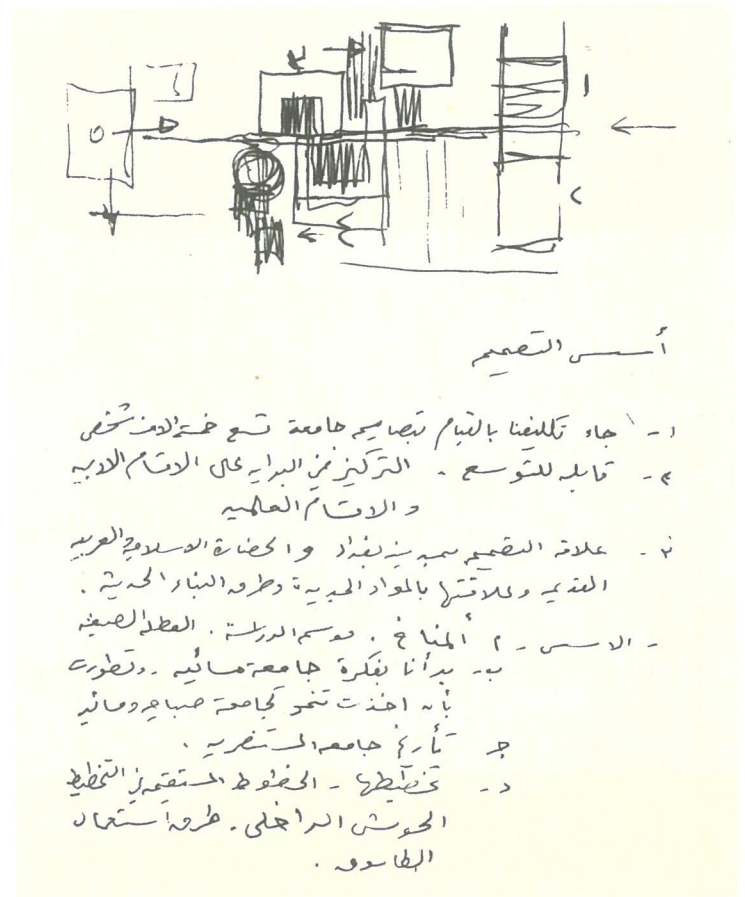 أسس التصميم
١- جاء تكليفنا بالقيام بتصاميم جامعة تسع خمسة الاف شخص
٢- قابله للتوسع . التركيز في البدايه على الاقسام الادبيه
و الاقسام العلميه
٣- علاقة التصميم بمدينة بغداد و الحضارة الاسلامية العربيه
القديمه وعلاقتها بالمواد الجديدة وطرق البناء الحديثة .
- الاسس - أ المناخ . موسم الدراسة . العطله الصيفيه
ب- بدأنا بفكرة جامعة مسائيه . وتطورت
بأن اخذت تنمو كجامعة صباحيه ومسائيه
جـ تأريخ جامعه المستنصريه .
د- تخطيطها - الخطوط المستقيمه في التخطيط
الحوش الداخلي . طرق استعمال
الطابوق .